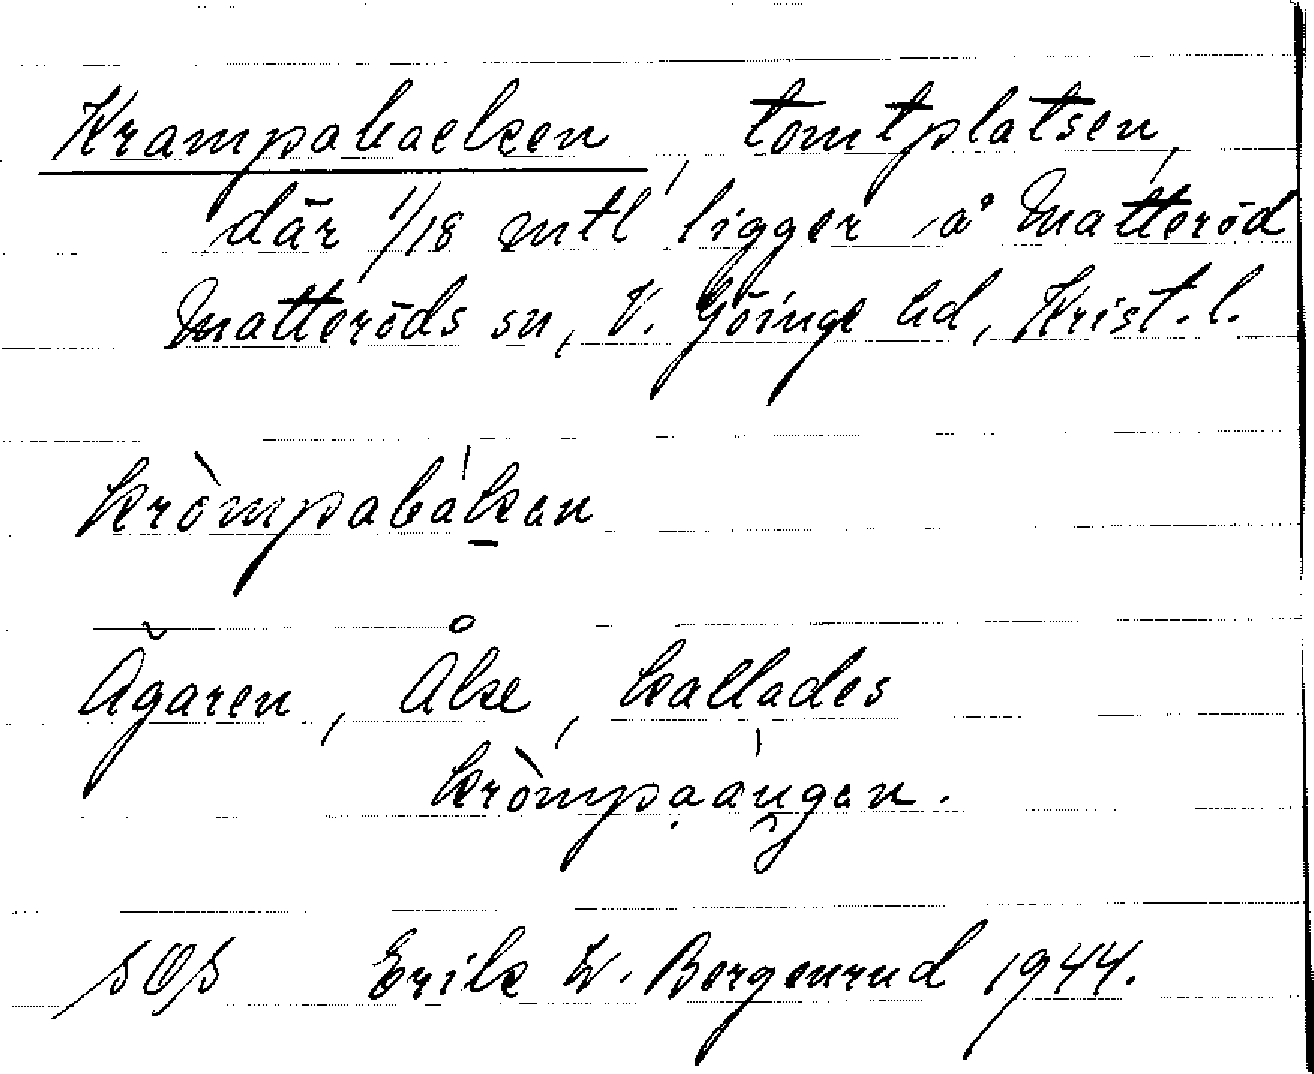 Krampabacken, tomtplatsen,
där 1/18 mtl ligger å Matteröd
Matteröds sn, V. Göinge hd, Krist. l.
kròmpabákan
Ägaren, Åke, kallades
kròmpaángan.
Erik W. Bergenrud 1944.